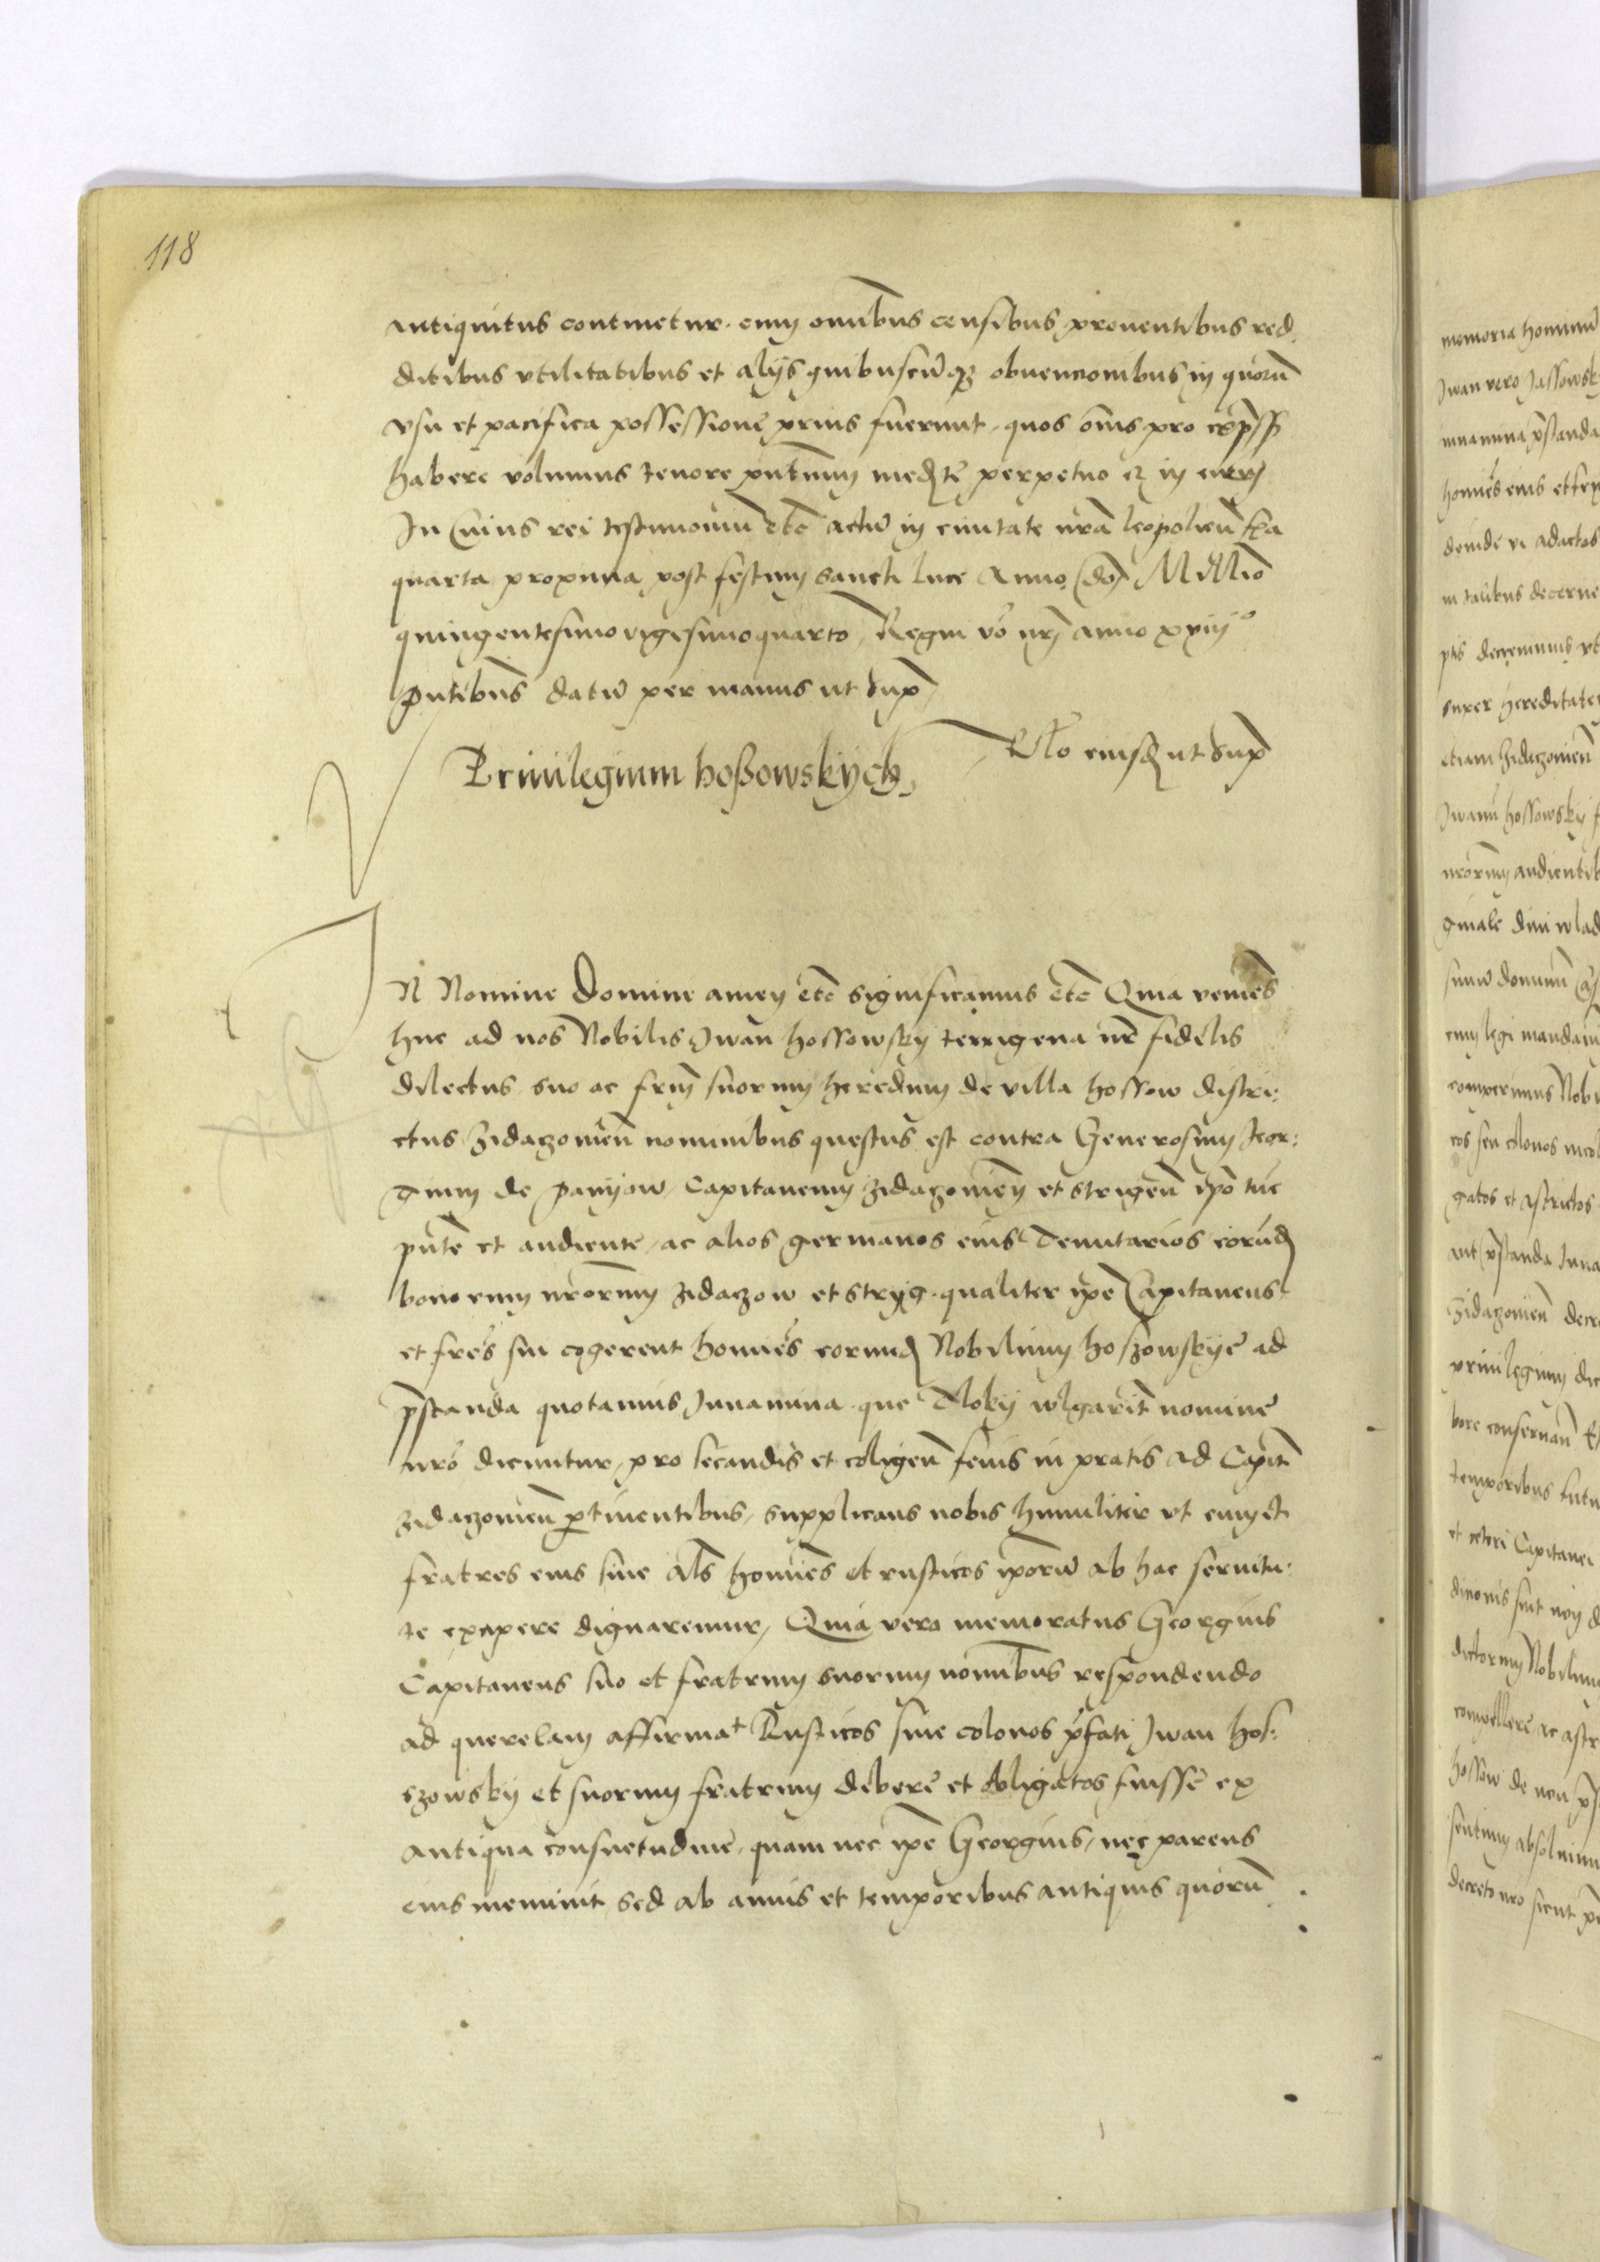 118
antiquitus continetur. cum omībus censibus prouentibus red
ditibus vtilitatibus et alijs quibuscūqȝ obuencionibus in quorū
vsu et pacifica possessione prius fuerunt. quos oms pro exp̄ss
habere volumus tenore pn̄tium med̄te perpetuo et in euum
In Cuius rei testimoniū etc̄ actū in ciuitate nr̄a leopolien̄ fr̄a
quarta proxima post festum sancti luce Anno dōi Millīo
quingentesimovigesimoquarto, Regni vō nr̄i anno xviij°
p̄ntibus datū per manus ut sup̄
Rl̄o eiusd ut sup̄
Priuilegium hoßowskÿch
IN Nomine Domine amen etc̄ significamus etc̄ Quia venies
huc ad nos Nobilis Iwan hossowsky terrigena nr̄ fidelis
dilectus suo ac frūm suorum heredum de villa hossow distri:
ctus Zidaczouien̄ nominibus questus est contra Generosum Geor:
gium de paniow, Capitaneum Zidaczouien̄ et strigen̄ ip̄o tūc
pn̄te et audiente, ac alios germanos eius Tenutarios eorūd
bonorum nr̄orum Zidaczow et stryg. qualiter ip̄e Capitaneus
et frēs sui cogerent homīes eorund Nobilium hoszowskye ad
p̄standa quotannis Iuuamina que Tloky wlgarit̄ nomine
nrō dicuntur, pro secandis et coligen̄ fenis in pratis ad Capit̄
zidaczouien̄ p̄tinentibus, supplicans nobis humiliter vt eum et
fratres eius siue als̄ homines et rusticos ip̄orū ab hac seruitu:
te eximere dignaremur, Quia vero memoratus Georgius
Capitaneus suo et fratrum suorum nomībus respondendo
ad querelam affirmat Rusticos siue colonos p̄fati Iwan hos:
szowsky et suorum fratrum debere et obligatos fuisse ex
antiqua consuetudine, quam nec ip̄e Georgius, nec parens
eius meminit sed ab annis et temporibus antiquis quorū
memoria hominū
Iwan vero Iassowsk
iuuamina p̄standa
homīes eius et
deinde vi adactos
in talibus decerne
decreuimus vt
super hereditate
etiam Zidaczouien̄
Iwanū hossowsky
nr̄orum audientib
ginale diui wlad
cum legi mandaui
comperimus Nobi
eos seu colonos
gatos et astrictos
Zidaczouien̄ decr
priuilegium dic
bore conseruan̄
temporibus futu
et ceteri Capitanei
dictorum Nobiliu
compellere ac astr
hossow de non
sentium absoluimu
decreto nro sicut